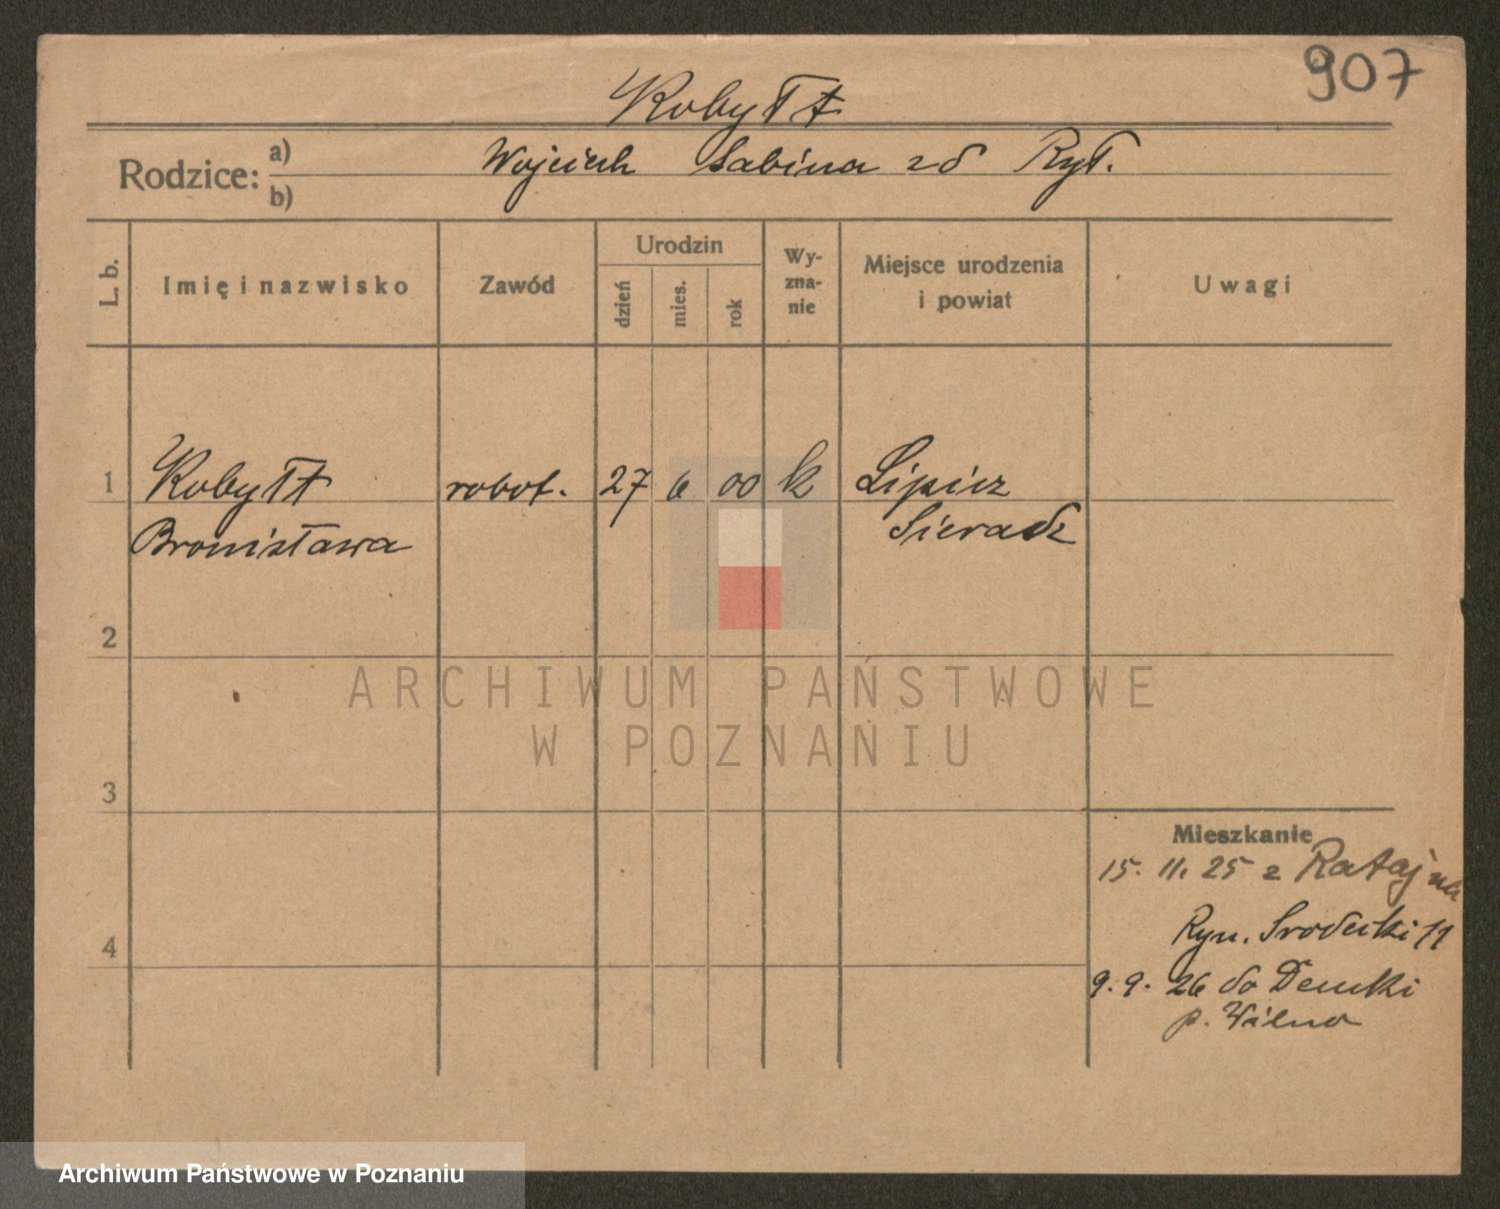 907
Kobyłt
Rodzice: a) Wojciech Sabina zd Rył.
b)
L. b.
Imię i nazwisko
Zawód
Urodzin
dzień
mies.
rok
Wy-
zna-
nie
Miejsce urodzenia
i powiat
Uwagi
1 Kobyłt robot. 27 6 00 k Lipicz
Bronisława Sieradz
2
ARCHIWUM PAŃSTWOWE
W POZNANIU
3
Mieszkanie
15. 11. 25 z Rataj na
Ryn. Srodecki 11
4
9. 9. 26 do
p. Wilno
Archiwum Państwowe w Poznaniu